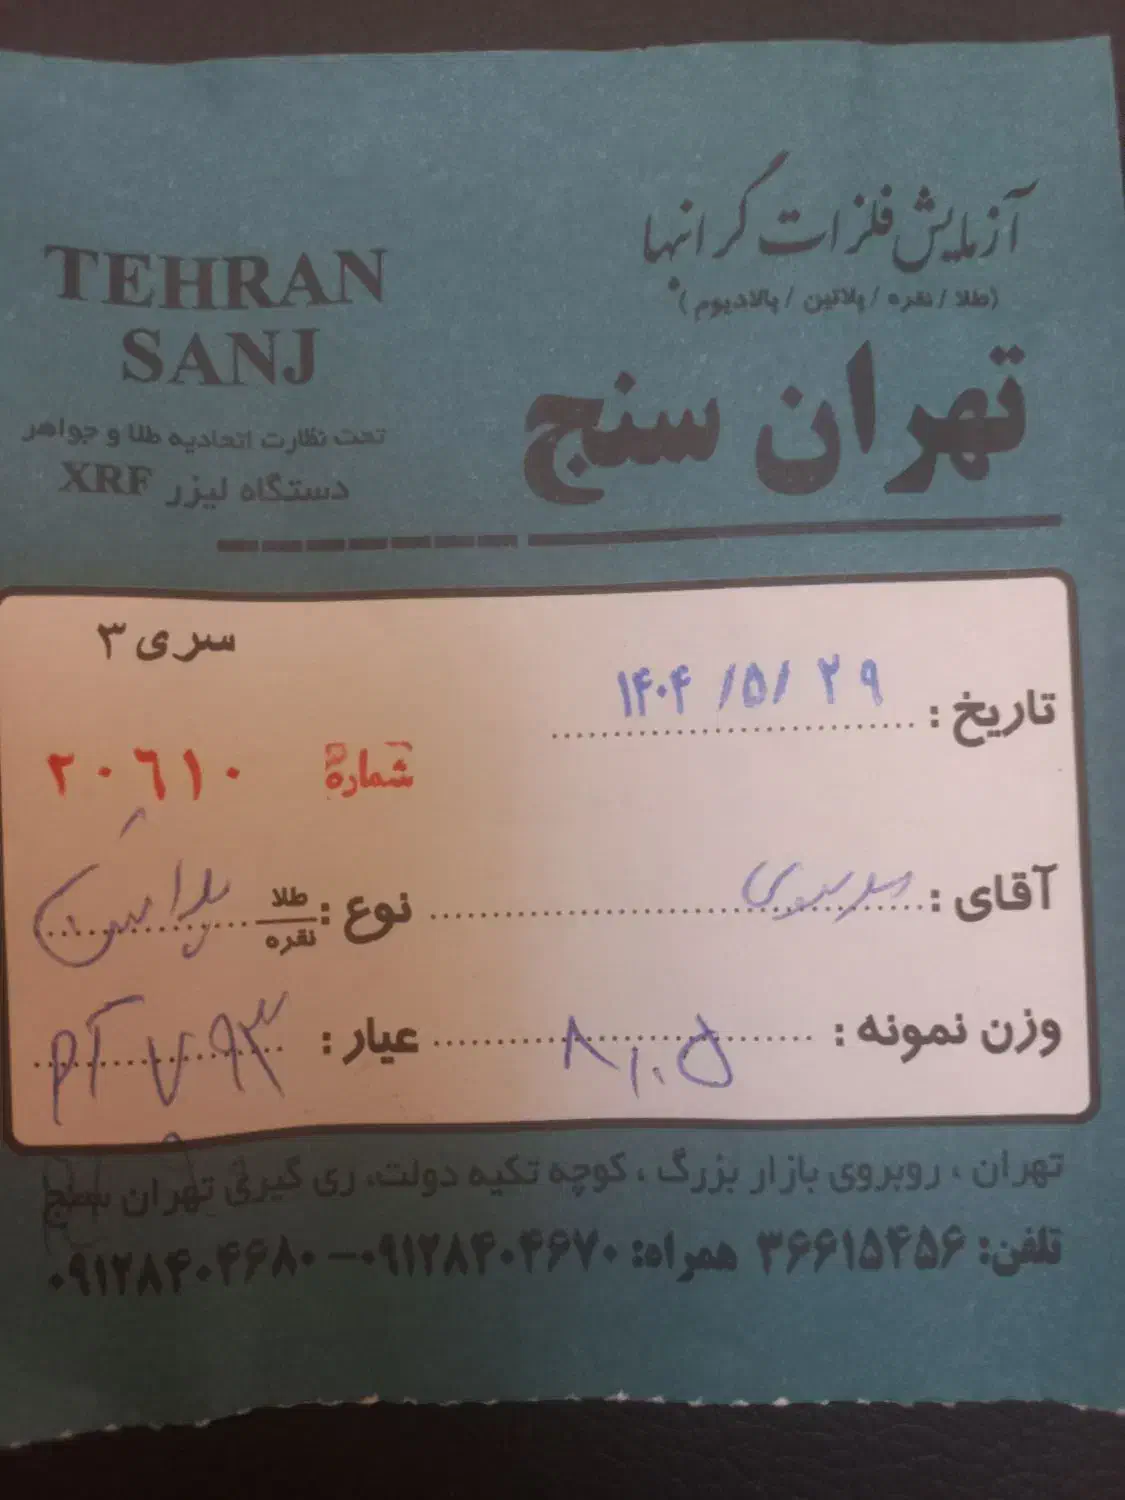 آزمایش فلزات گرانبها
(طلا / نقره / پلاتین / پالادیوم)
تهران سنج
TEHRAN
SANJ
تحت نظارت اتحادیه طلا و جواهر
دستگاه لیزر XRF
سری ۳
تاریخ : ۱۴۰۴ /۵/ ۲۹
شماره ۲۰۶۱۰
آقای :
نوع : طلا
نقره پلاتین
وزن نمونه :
عیار : PT ۷۹۳
تهران ، روبروی بازار بزرگ ، کوچه تکیه دولت، ری گیری تهران سنج
تلفن: ۳۶۶۱۵۴۵۶ همراه: ۰۹۱۲۸۴۰۴۶۷۰-۰۹۱۲۸۴۰۴۶۸۰